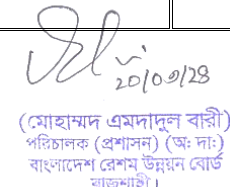 ২০/০৩/২৪
(মোহাম্মদ এমদাদুল বারী)
পরিচালক (প্রশাসন) (অ: দা:)
বাংলাদেশ রেশম উন্নয়ন বোর্ড
রাজশাহী।